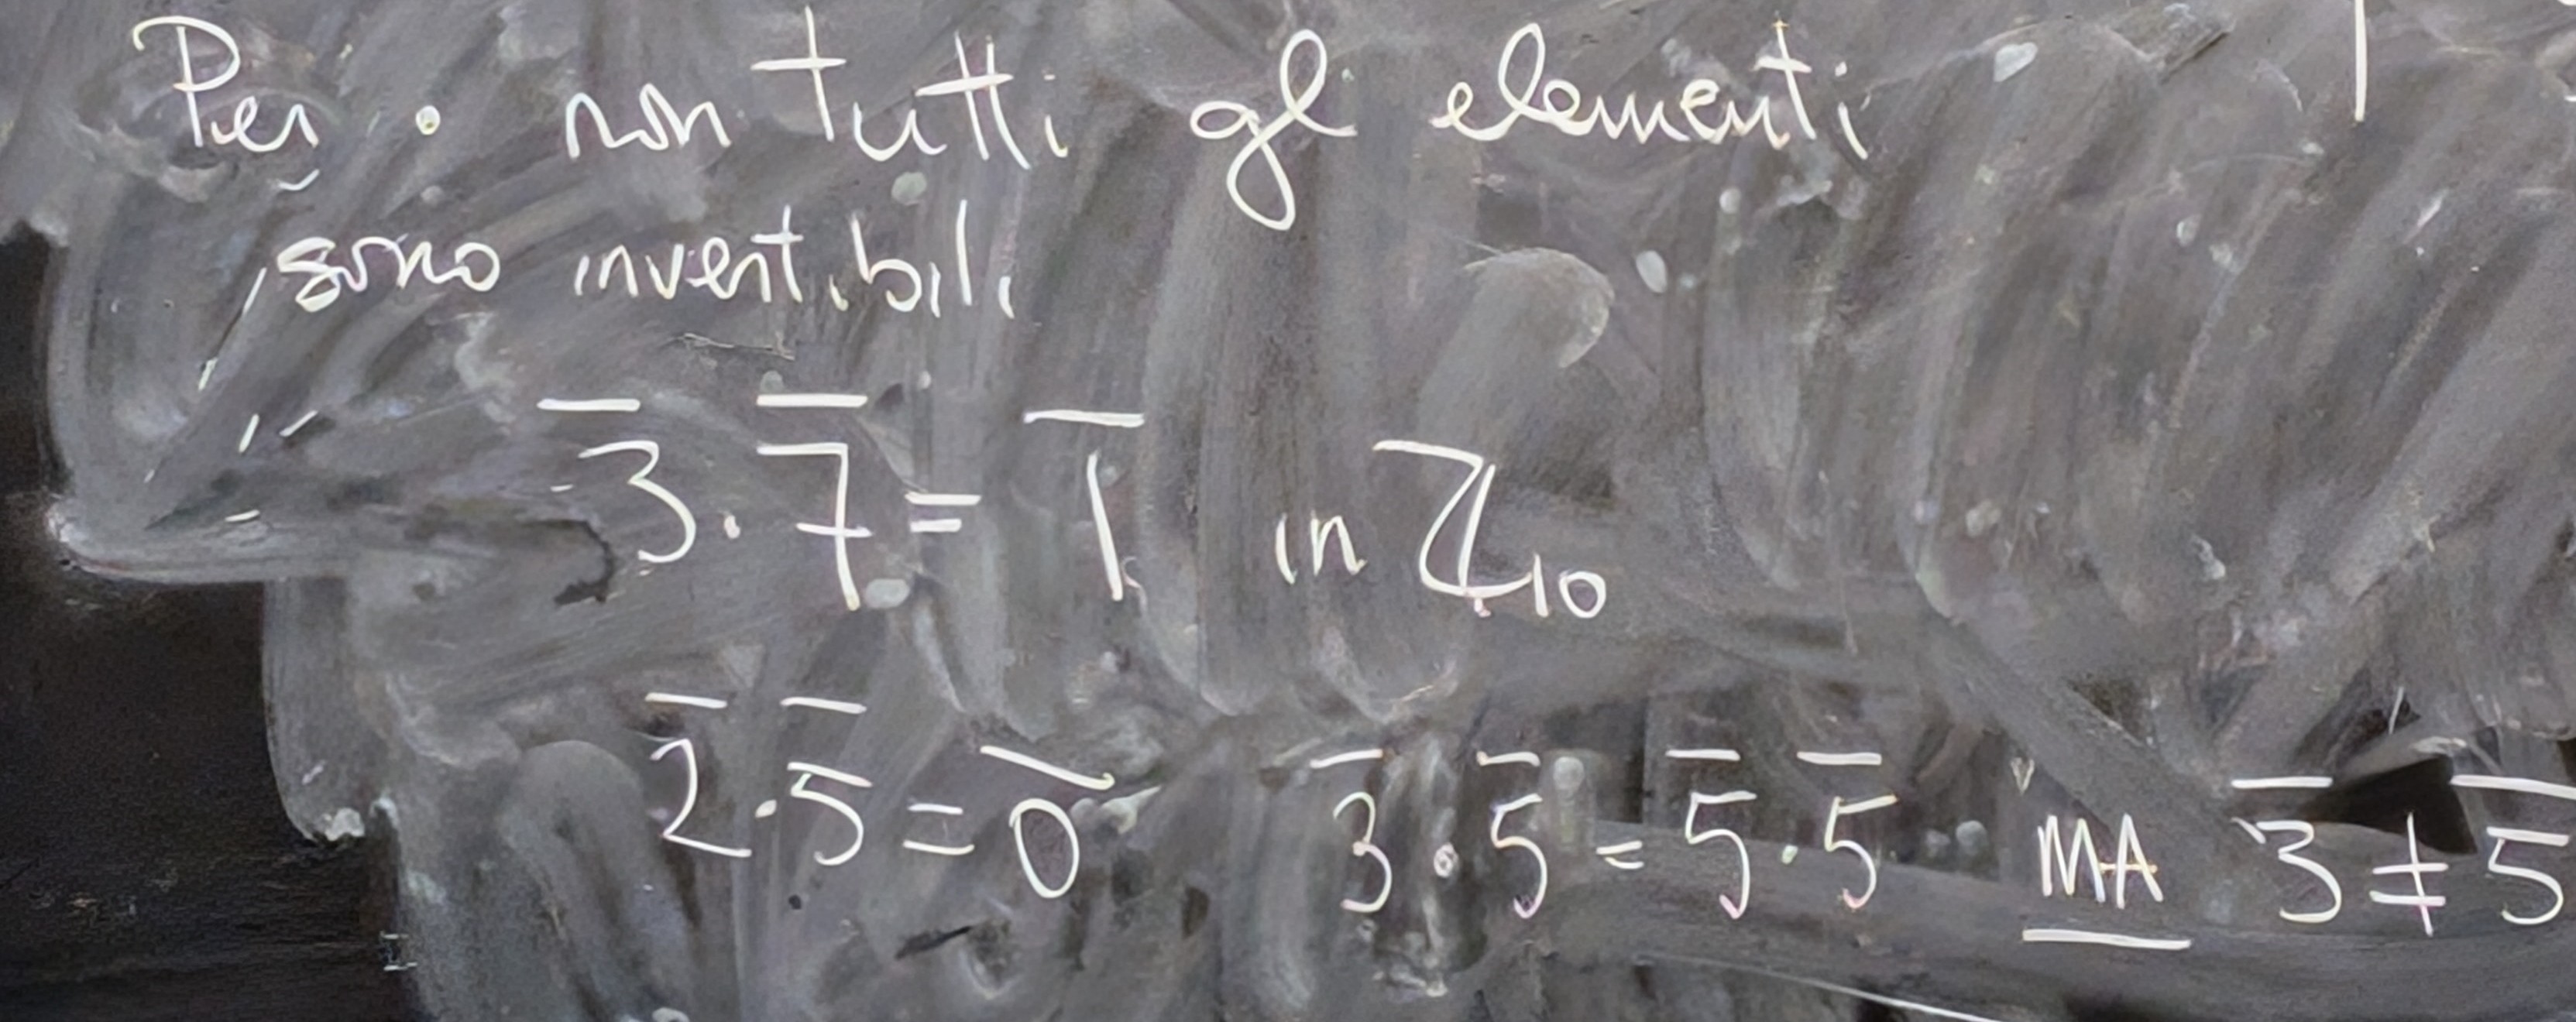 Per · non tutti gl elementi
sono invertibili
3̅ · 7̅ = 1̅ in ℤ₁₀
2̅ · 5̅ = 0̅ 3̅ · 5̅ = 5̅ · 5̅ MA 3̅ ≠ 5̅